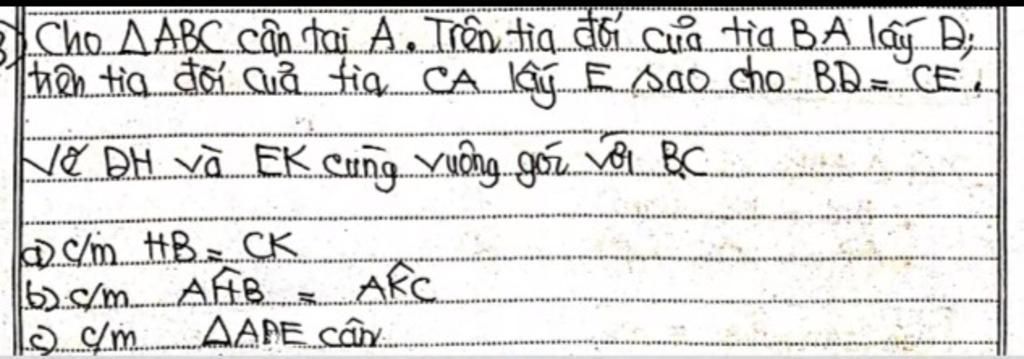 Cho ΔABC cân tại A. Trên tia đối của tia BA lấy D;
trên tia đối của tia CA lấy E sao cho BD = CE.
Vẽ DH và EK cùng vuông gói với BC
a) c/m HB = CK
b) c/m AĤB = AK̂C
c) c/m ΔADE cân